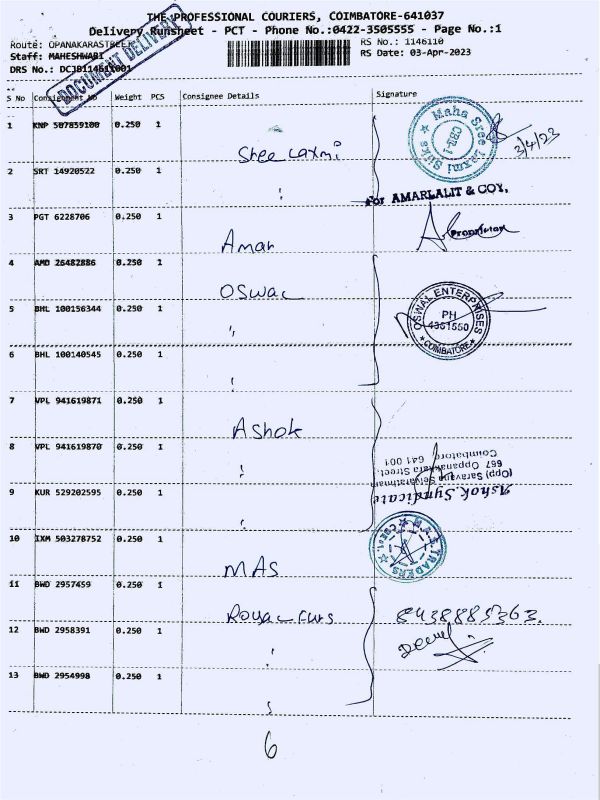 THE PROFESSIONAL COURIERS, COIMBATORE-641037
Delivery Runsheet - PCT - Phone No.:0422-3505555 - Page No.:1
Route: OPANAKARASTREET
RS No.: 1146110
Staff: MAHESHWARI
RS Date: 03-Apr-2023
DRS No.: DCJB114611001
DOCUMENT DELIVERY
S No Consignment No Weight PCS Consignee Details Signature
1 KNP 507859100 0.250 1 Shree Laxmi
Maha Sree Laxmi Silks
CBE-1
3/4/23
2 SRT 14920522 0.250 1 "
For AMARLALIT & COY,
3 PGT 6228706 0.250 1 Amar
Proprietor
4 AMD 26482886 0.250 1 Oswal
OSWAL ENTERPRISES
PH
4361550
COIMBATORE
5 BHL 100156344 0.250 1 "
6 BHL 100140545 0.250 1 "
7 VPL 941619871 0.250 1 Ashok
8 VPL 941619870 0.250 1 "
Ashok Syndicate
(Opp) Saravana Selvarathnam
667 Oppanakkara Street,
Coimbatore 641 001
9 KUR 529202595 0.250 1 "
10 IXM 503278752 0.250 1 MAS
M.A.S. TRADERS
11 BWD 2957459 0.250 1 Royal Furs 8438885363.
12 BWD 2958391 0.250 1 "
13 BWD 2954998 0.250 1 "
6